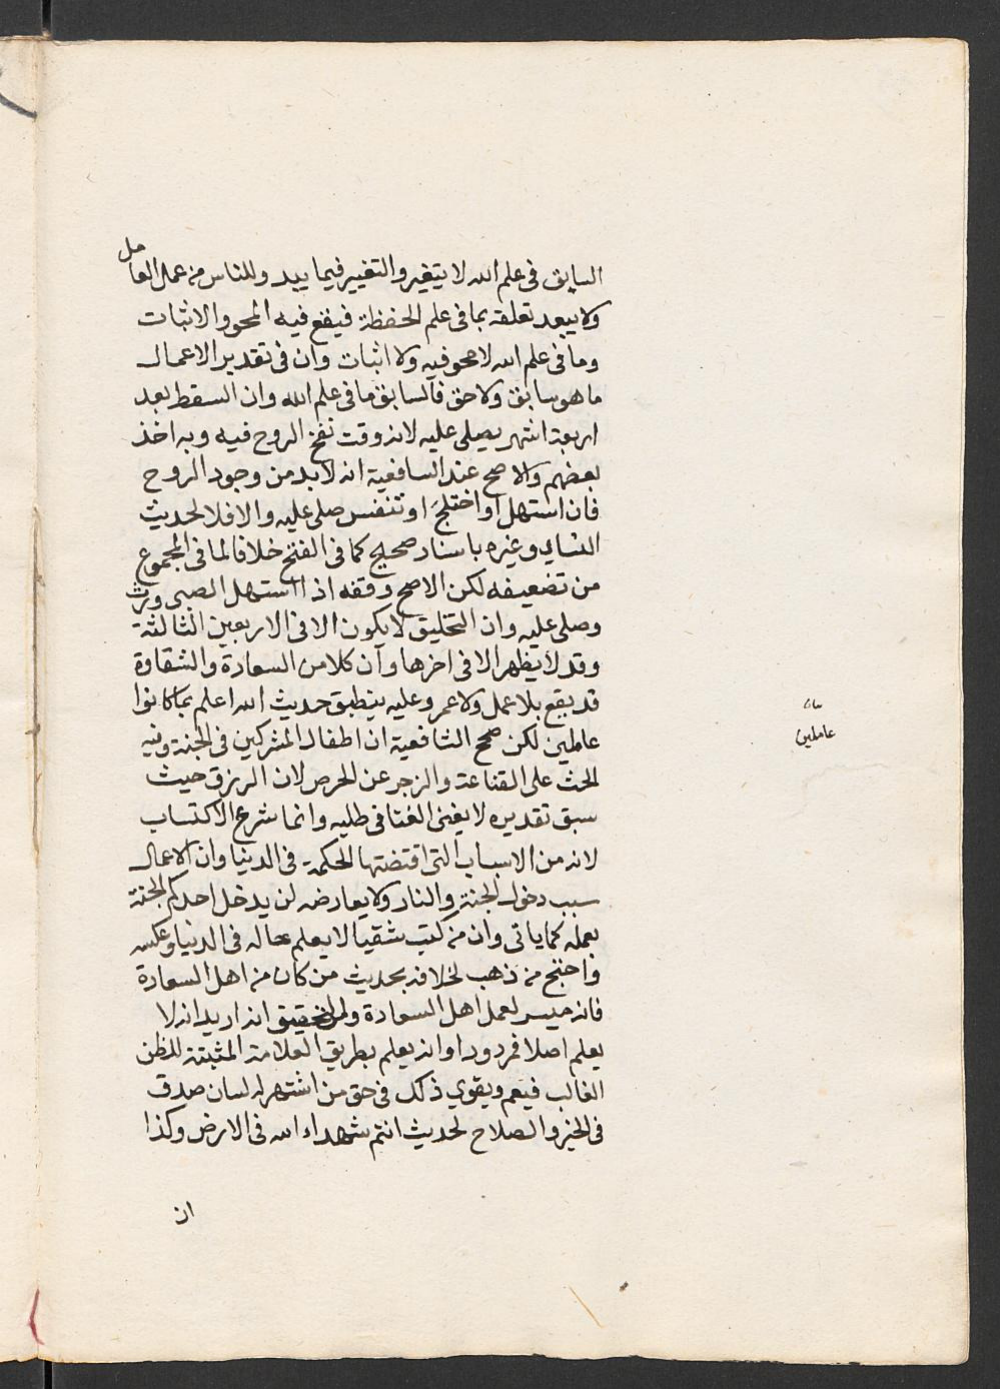 السابق فى علم الله لا يتغير والتغيير فيما يبد وللناس من عمل العامل
ولا يبعد تعلقه بما فى علم الحفظة فيقع فيه المحو والاثبات
وما فى علم الله لا محو فيه ولا اثبات وان فى تقدير الاعمال
ما هو سابق ولاحق فالسابق ما فى علم الله وان السقط بعد
اربعة اشهر يصلى عليه لانه وقت نفخ الروح فيه وبه اخذ
بعضهم والاصح عند الشافعية انه لا بد من وجود الروح
فان استهل او اختلج او تنفس صلى عليه والا فلا لحديث
النساي وغيره باسناد صحيح كما فى الفتح خلافا لما فى المجموع
من تضعيفه لكن الاصح وقفه اذا استهل الصبى ورث
وصلى عليه وان التخليق لا يكون الا فى الاربعين الثالثة
وقد لا يظهر الا فى اخرها وان كلا من السعادة والشقاوة
قد يقع بلا عمل ولا عمر وعليه ينطبق حديث الله اعلم بما كانوا
عاملين لكن صحح الشافعية ان اطفال المشركين فى الجنة وفيه
الحث على القناعة والزجر عن الحرص لان الرزق حيث
سبق تقديره لا يغنى العنا فى طلبه وانما شرع الاكتساب
لانه من الاسباب التى اقتضتها الحكمة فى الدنيا وان الاعمال
سبب دخول الجنة والنار ولا يعارضه لن يدخل احدكم الجنة
بعمله كما ياتى وان من كتب شقيا لا يعلم حاله فى الدنيا وعكسه
واحتج من ذهب لخلافه بحديث من كان من اهل السعادة
فانه ميسر لعمل اهل السعادة والتحقيق انه اريد انه لا
يعلم اصلا فمردود او انه يعلم بطريق العلامة المثبتة للظن
الغالب فنعم ويقوي ذلك فى حق من اشتهر له لسان صدق
فى الخير والصلاح لحديث انتم شهداء الله فى الارض وكذا
ان
عاملين